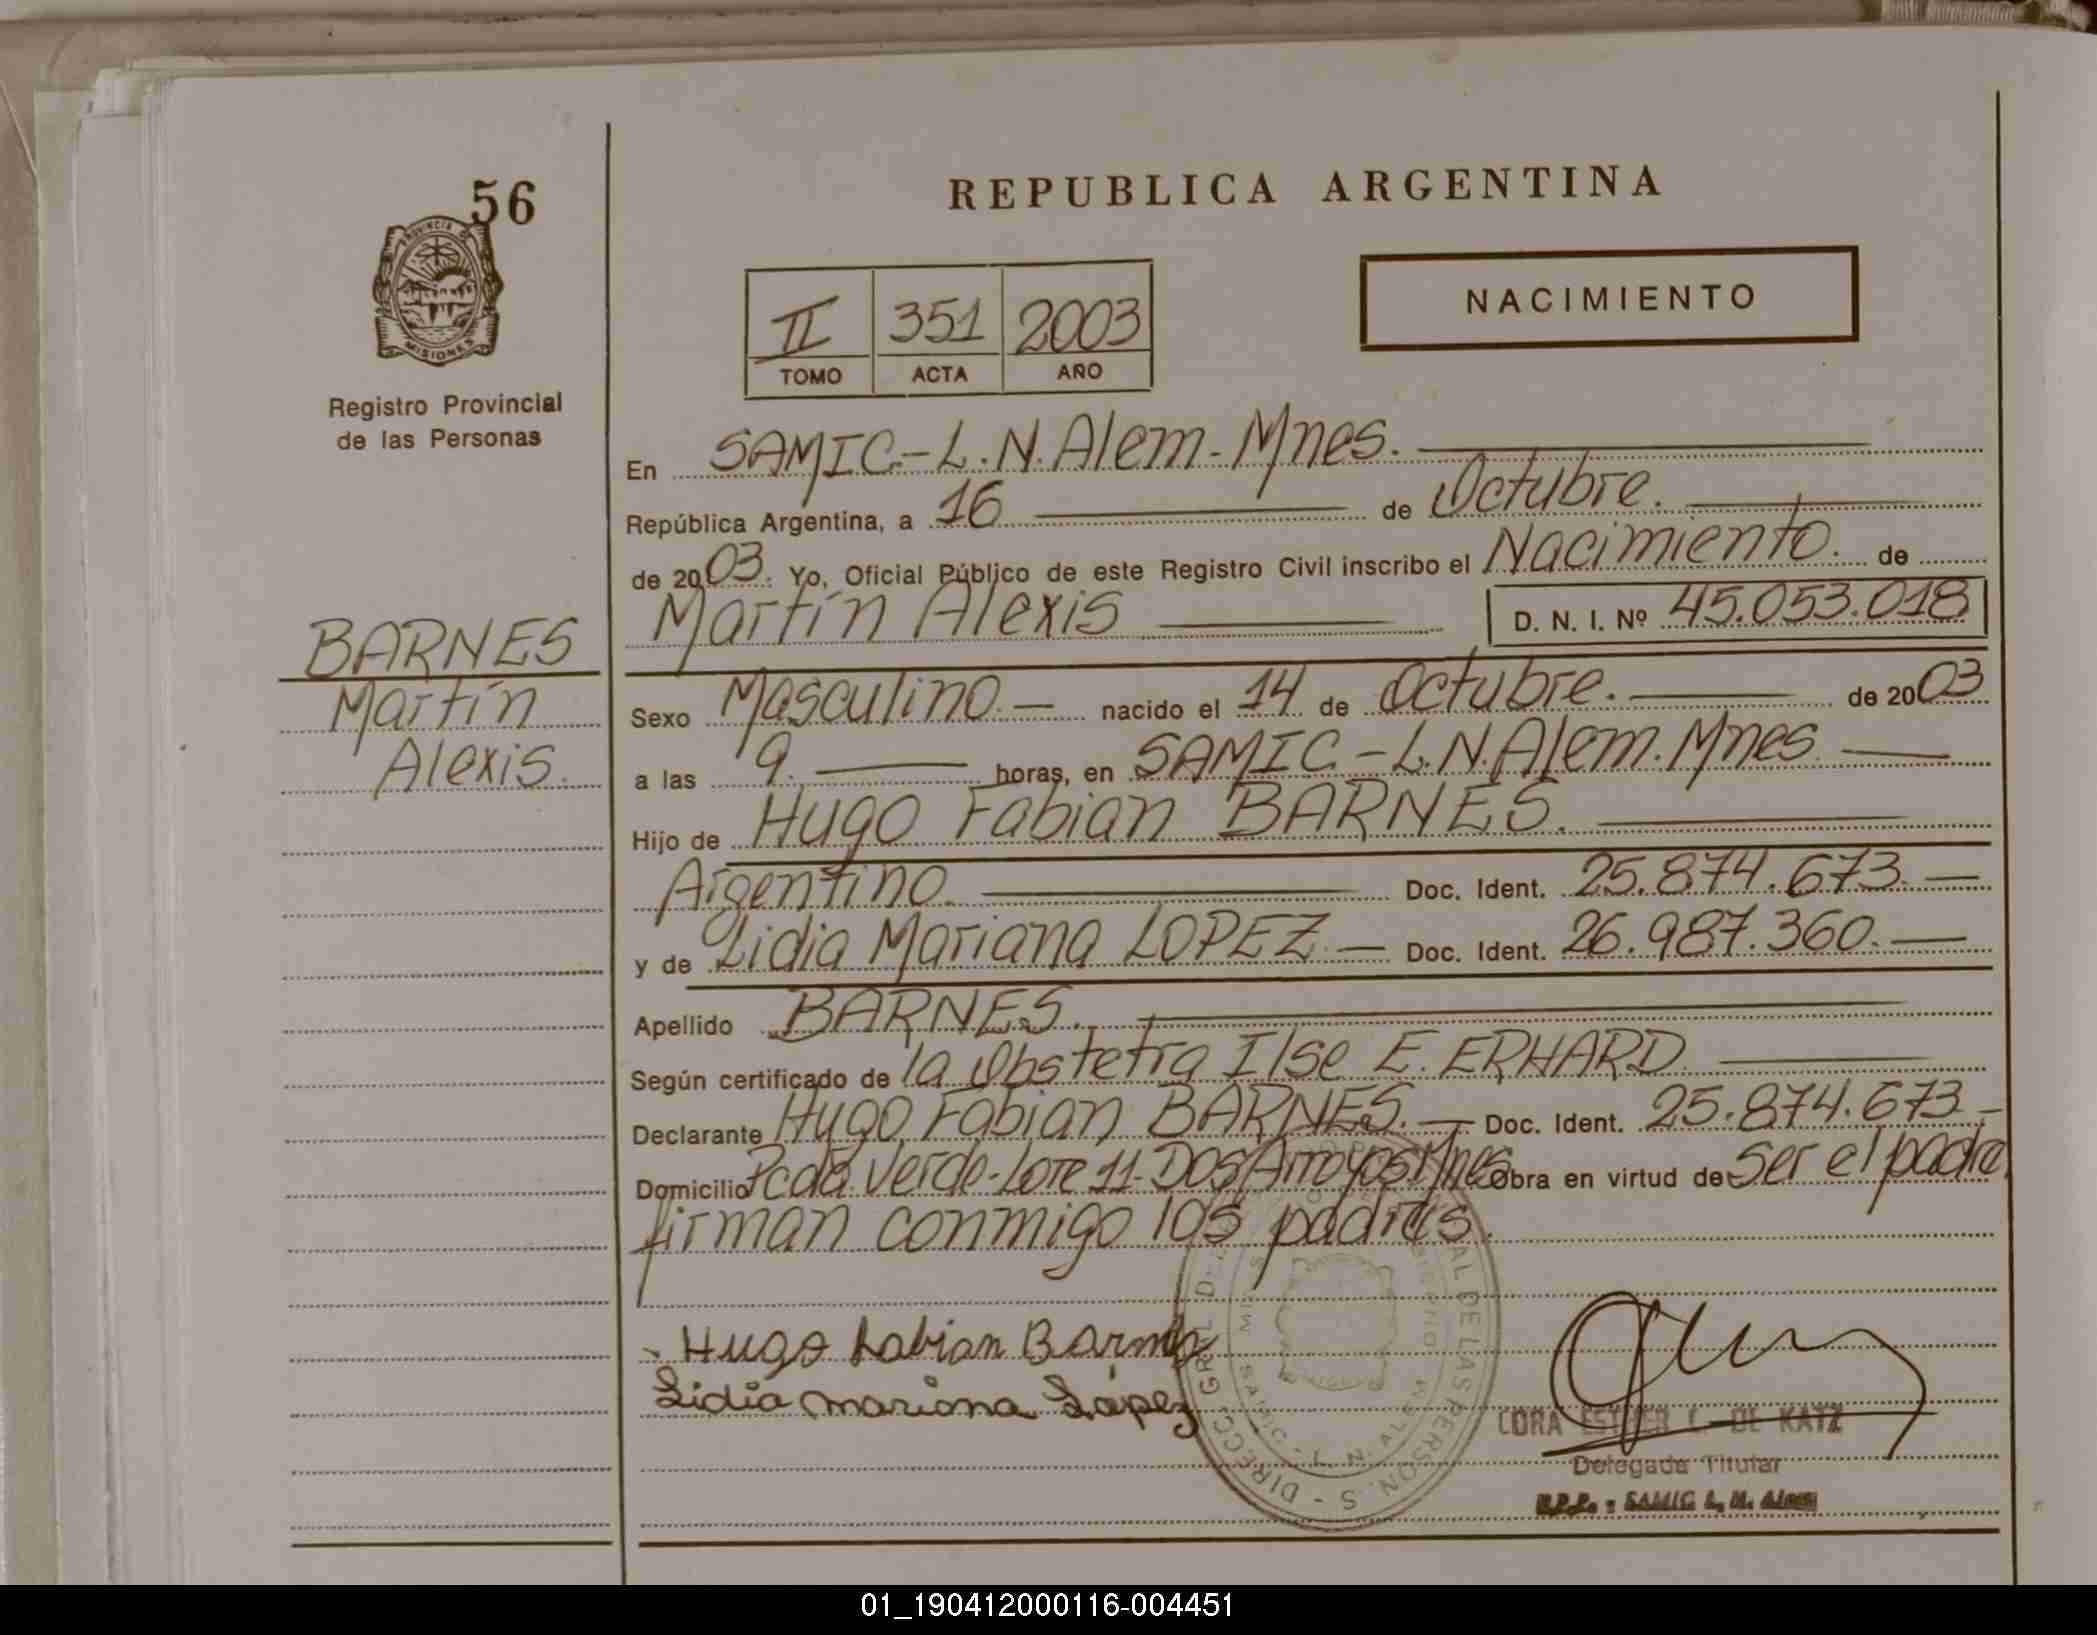 56
PROVINCIA DE
MISIONES
Registro Provincial
de las Personas
BARNES
Martín
Alexis.
REPUBLICA ARGENTINA
NACIMIENTO
II 351 2003
TOMO ACTA AÑO
En SAMIC.-L.N.Alem.-Mnes.
República Argentina, a 16 de Octubre.
de 2003. Yo, Oficial Público de este Registro Civil inscribo el Nacimiento. de
Martín Alexis D. N. I. Nº 45.053.018
Sexo Masculino.- nacido el 14 de Octubre. de 2003
a las 9. horas, en SAMIC.-L.N.Alem.Mnes
Hijo de Hugo Fabian BARNES.
Argentino. Doc. Ident. 25.874.673.-
y de Lidia Mariana LOPEZ.- Doc. Ident. 26.987.360.-
Apellido BARNES.
Según certificado de la Obstetra Ilse E. ERHARD.
Declarante Hugo Fabian BARNES.- Doc. Ident. 25.874.673-
Domicilio Pcda Verde-Lote 11-Dos Arroyos Mnes Obra en virtud de Ser el padre
firman conmigo los padres.
Hugo Fabian Barnes
Lidia mariana López
DIRECC. GRAL. D AL DE LAS PERSON. S
SAMIC - L. N. ALEM
CORA ESTHER L. DE KATZ
Delegada Titular
R.P.P. - SAMIC L. N. Alem
01_190412000116-004451